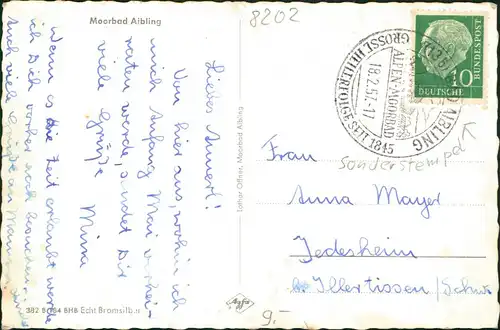 Moorbad Aibling
8202
Liebes Annerl!
Von hier aus, wohin ich
mich Anfang Mai verhei-
raten werde, sendet Dir
viele Grüße
Mina
Wenn es die Zeit erlaubt werde
ich Dich vorher noch besuchen
Auch viele Grüße an Mama
Lothar Offner, Moorbad Aibling
382 BHB Echt Bromsilber
Agfa
9.-
GROSSE HEILERFOLGE SEIT 1845
ALPEN-MOORBAD
18.2.57.-17
AIBLING
DEUTSCHE
BUNDESPOST
10
Sonderstempel
Frau
Anna Mayer
Jedesheim
Illertissen / Schw.